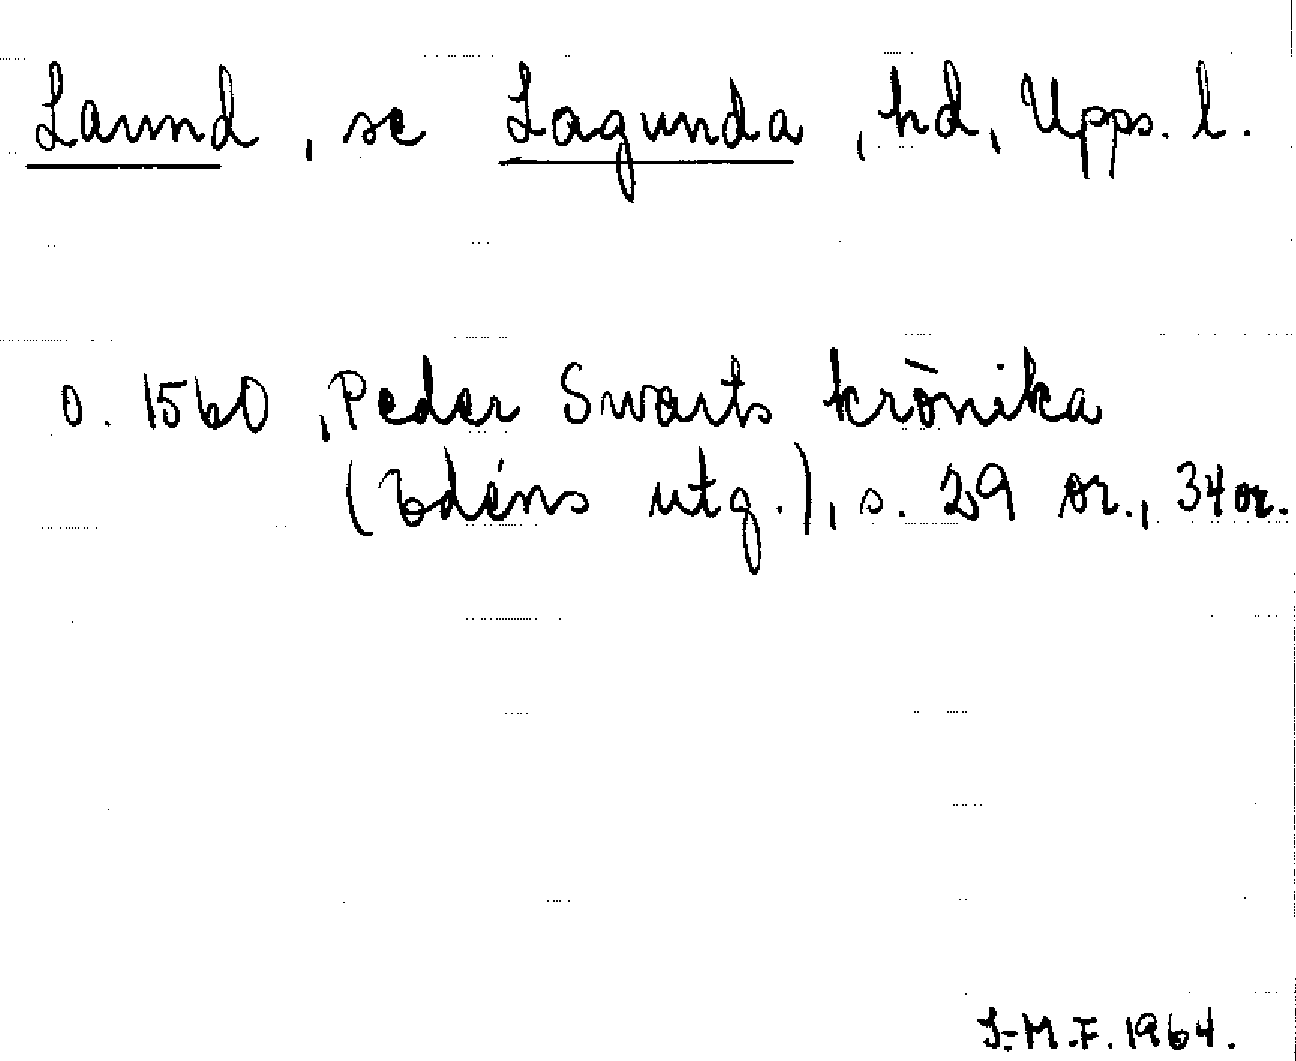 Laund, se Lagunda, hd, Upps. l.
o. 1560, Peder Swarts krönika
(Edéns utg.), s. 29 or., 34 or.
I-M.F. 1964.